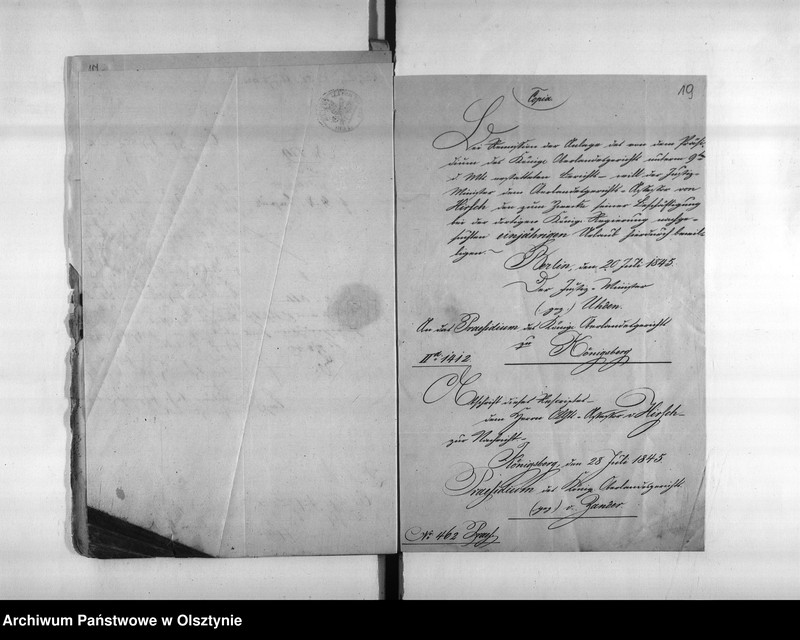 19
Copia.
Bei Remission der Anlage des von dem Präsi-
dium des Königl. Oberlandesgerichts unterm 9ten
d. Mts. erstatteten Berichts will der Justiz-
Minister dem Oberlandesgerichts-Assessor von
Hirsch den zum Zweck seiner Beschäftigung
bei der dortigen Königl. Regierung nachge-
suchten einjährigen Urlaub hierdurch bewil-
ligen.
Berlin, den 20 Juli 1845.
Der Justiz-Minister
(gez.) Uhden.
An das Praesidium des Königl. Oberlandesgerichts
zu Königsberg
1412.
Abschrift dieses Rescripts
dem Herrn Assessor v. Hirsch
zur Nachricht.
Königsberg, den 28 Juli 1845.
Praesidium des Königl. Oberlandesgerichts
(gez) v. Zander.
No. 462 Praes.
Archiwum Państwowe w Olsztynie